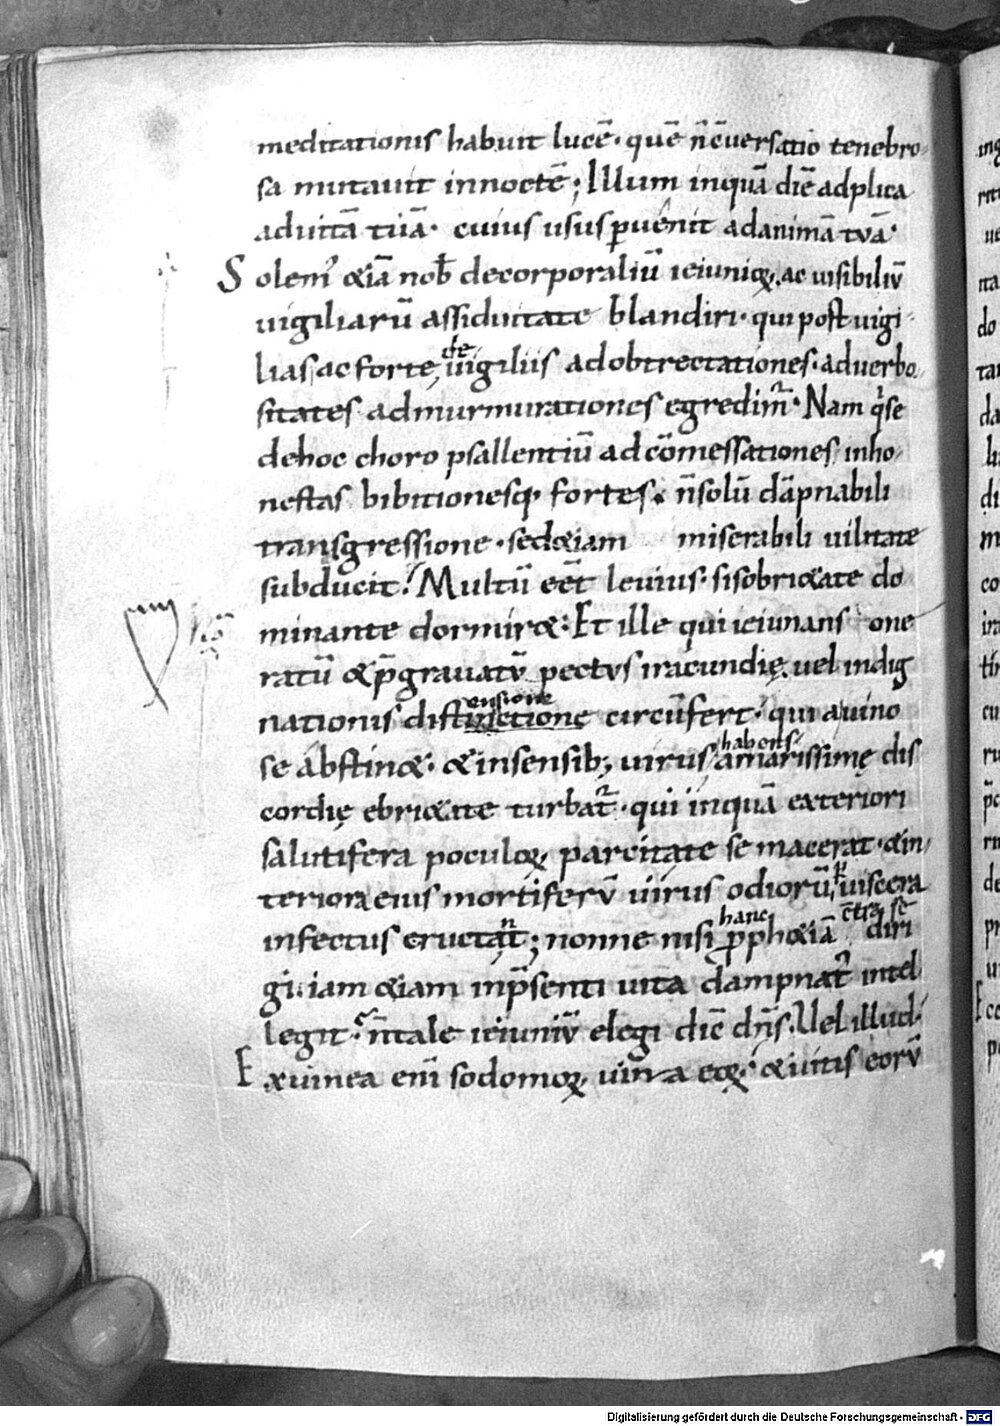 meditationis habuit lucē· quē n̄ c̄uersatio tenebro-
sa mutauit in noctē; Illum inquā diē adplica
ad uitā tuā· cuius usus ꝑuenit ad animā tuā·
Solem᷑ &iā nob̄ de corporaliū ieiunioꝝ· ac uisibiliū
uigiliarū assiduitate blandiri· qui post uigi-
de
lias ac forte, uigiliis ad obtrectationes· ad uerbo-
sitates ad murmurationes egredim᷑· Nam q̇ se
de hoc choro psallentiū ad cōmessationes inho-
nestas bibitionesq· fortes· n̄ solū dāpnabili
transgressione· sed &iam miserabili uilitate
subducit! Multū eēt leuius· si sobri&ate do
minante dormir&; Et ille qui ieiunans one
ratū & p̄grauatū pectus iracundię uel indig
ensione
nationis distinctione circūfert· qui a uino
habens
se abstin&· & insensib; uirus amarissimę dis
cordię ebri&ate turbat᷑· qui inquā exteriori
salutifera poculoꝝ parcitate se macerat· & in-
teriora eius mortiferū uirus odiorū, uiscera
hanc c̄tra se
infectus eructat; nonne nisi ꝓph&iā diri
gi· iam &iam in p̄senti uita dampnat᷑ intel
legit· n̄ tale ieiuniū elegi dic̄ dn̄s· Uel illud·
Ex uinea eni̅ sodomoꝝ uinea eoꝝ· & uitis eorū
Digitalisierung gefördert durch die Deutsche Forschungsgemeinschaft - DFG